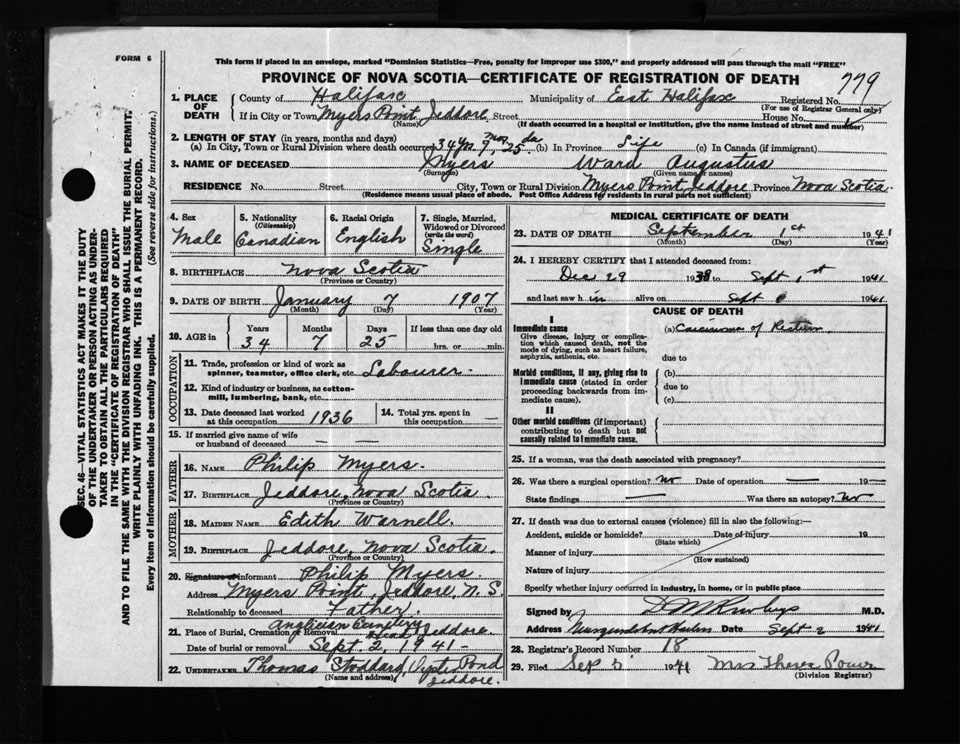 FORM 6
This form if placed in an envelope, marked "Dominion Statistics—Free, penalty for improper use $300," and properly addressed will pass through the mail "FREE"
PROVINCE OF NOVA SCOTIA—CERTIFICATE OF REGISTRATION OF DEATH
779
1. PLACE OF DEATH County of Halifax Municipality of East Halifax Registered No.
(For use of Registrar General only)
If in City or Town Myers Point, Jeddore Street House No.
(Name) (If death occurred in a hospital or institution, give the name instead of street and number)
2. LENGTH OF STAY (in years, months and days)
(a) In City, Town or Rural Division where death occurred 34 yrs 7 mos 25 da (b) In Province Life (c) In Canada (if immigrant)
3. NAME OF DECEASED Myers Ward Augustus
(Surname) (Given name or names)
RESIDENCE No. Street City, Town or Rural Division Myers Point, Jeddore Province Nova Scotia
(Residence means usual place of abode. Post Office Address for residents in rural parts not sufficient)
4. Sex Male
5. Nationality (Citizenship) Canadian
6. Racial Origin English
7. Single, Married, Widowed or Divorced (write the word) Single
8. BIRTHPLACE Nova Scotia
(Province or Country)
9. DATE OF BIRTH January 7 1907
(Month) (Day) (Year)
10. AGE in Years 34 Months 7 Days 25 If less than one day old hrs. or min.
OCCUPATION
11. Trade, profession or kind of work as spinner, teamster, office clerk, etc. Labourer
12. Kind of industry or business, as cotton-mill, lumbering, bank, etc.
13. Date deceased last worked at this occupation 1936
14. Total yrs. spent in this occupation —
15. If married give name of wife or husband of deceased — —
FATHER
16. NAME Philip Myers
17. BIRTHPLACE Jeddore, Nova Scotia
(Province or Country)
MOTHER
18. MAIDEN NAME Edith Warnell
19. BIRTHPLACE Jeddore, Nova Scotia
(Province or Country)
20. Signature of informant Philip Myers
Address Myers Point, Jeddore, N.S.
Relationship to deceased Father
21. Place of Burial, Cremation or Removal Anglician Cemetery Head Jeddore
Date of burial or removal Sept. 2, 1941
22. UNDERTAKER Thomas Stoddard, Pond
(Name and address) Jeddore.
MEDICAL CERTIFICATE OF DEATH
23. DATE OF DEATH September 1st 1941
(Month) (Day) (Year)
24. I HEREBY CERTIFY that I attended deceased from:
Dec 29 1938 to Sept 1st 1941
and last saw him alive on Sept 1941
CAUSE OF DEATH
I
Immediate cause
Give disease, injury or complication which caused death, not the mode of dying, such as heart failure, asphyxia, asthenia, etc.
(a) Carcinoma of Rectum
due to
Morbid conditions, if any, giving rise to immediate cause (stated in order proceeding backwards from immediate cause).
(b)
due to
(c)
II
Other morbid conditions (if important) contributing to death but not causally related to immediate cause.
25. If a woman, was the death associated with pregnancy?
26. Was there a surgical operation? no Date of operation — 19—
State findings — Was there an autopsy? no
27. If death was due to external causes (violence) fill in also the following:—
Accident, suicide or homicide? Date of injury 19
(State which)
Manner of injury
(How sustained)
Nature of injury
Specify whether injury occurred in industry, in home, or in public place
Signed by M.D.
Address Musquodoboit Harbour Date Sept 2 1941
28. Registrar's Record Number 18
29. Filed Sep 5 1941 Mrs Theresa Power
(Division Registrar)
SEC. 46—VITAL STATISTICS ACT MAKES IT THE DUTY
OF THE UNDERTAKER OR PERSON ACTING AS UNDER-
TAKER TO OBTAIN ALL THE PARTICULARS REQUIRED
IN THE "CERTIFICATE OF REGISTRATION OF DEATH"
AND TO FILE THE SAME WITH THE DIVISION REGISTRAR WHO SHALL ISSUE THE BURIAL PERMIT.
WRITE PLAINLY WITH UNFADING INK. THIS IS A PERMANENT RECORD.
Every item of information should be carefully supplied. (See reverse side for instructions.)